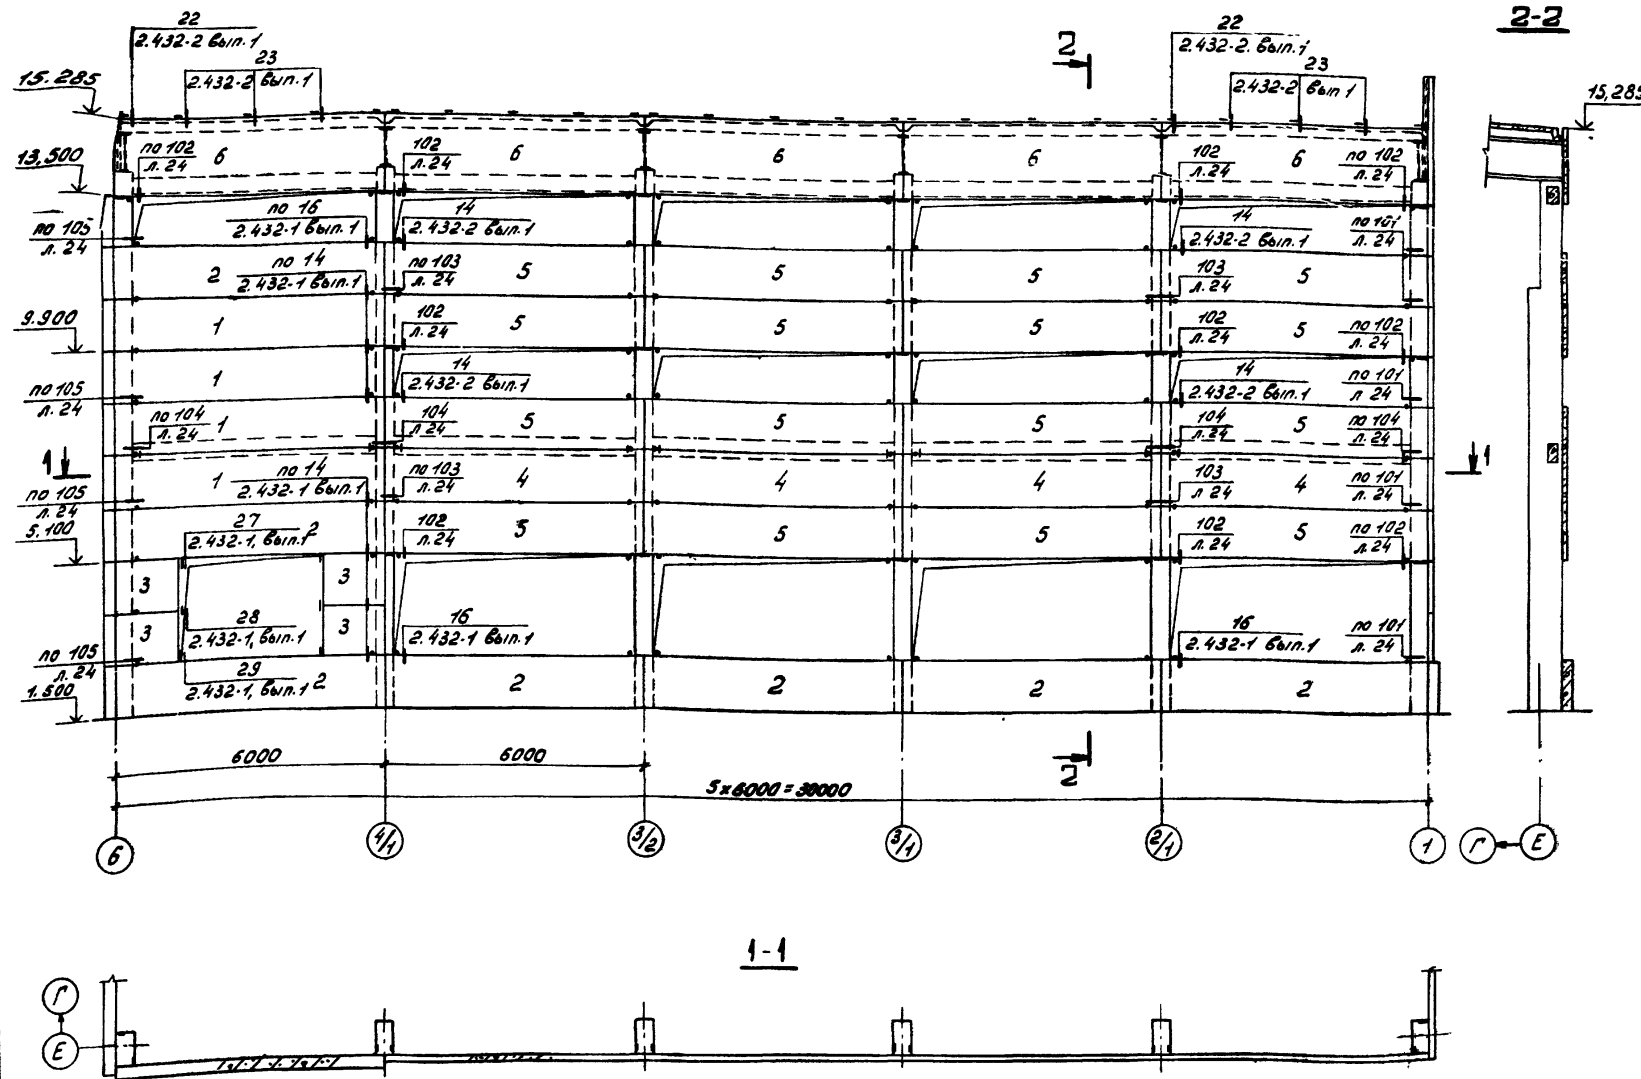 22
2.432-2 вып.1
23
2.432-2 вып.1
22
2.432-2. вып.1
23
2.432-2 вып 1
2
2-2
15.285
15,285
13,500
по 102
л.24
6
102
л.24
6
6
6
102
л.24
6
по 102
л.24
по 105
л.24
по 16
2.432-1 вып.1
14
2.432-2 вып.1
14
2.432-2 вып.1
по 101
л.24
2
по 14
2.432-1 вып.1
по 103
л.24
5
5
5
103
л.24
5
9.900
1
102
л.24
5
5
5
102
л.24
5
по 102
л.24
1
14
2.432-2 вып.1
14
2.432-2 вып.1
по 101
л 24
по 105
л.24
по 104
л.24
1
104
л.24
5
5
5
104
л.24
5
по 104
л.24
1
1
1
по 14
2.432-1 вып.1
по 103
л.24
4
4
4
103
л 24
4
по 101
л.24
по 105
л.24
5.100
27
2.432-1, вып.1
2
102
л.24
5
5
5
102
л.24
5
по 102
л.24
3
3
3
28
2.432-1, вып.1
3
16
2.432-1 вып.1
16
2.432-1 вып.1
по 101
л.24
по 105
л.24
1.500
29
2.432-1, вып.1
2
2
2
2
2
6000
6000
2
5x6000=30000
6
4/1
3/2
3/1
2/1
1
Г
Е
1-1
Г
Е